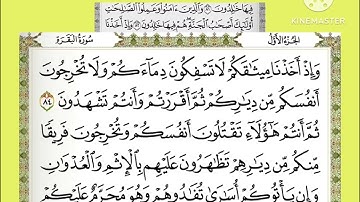 فِيهَا خَٰلِدُونَ ۝ وَٱلَّذِينَ ءَامَنُوا۟ وَعَمِلُوا۟ ٱلصَّٰلِحَٰتِ
أُو۟لَٰٓئِكَ أَصْحَٰبُ ٱلْجَنَّةِ هُمْ فِيهَا خَٰلِدُونَ ۝ وَإِذْ أَخَذْنَا
MADE WITH
KINEMASTER
الجُزءُ الأَوَّل
سُورَةُ البَقَرَةِ
وَإِذْ أَخَذْنَا مِيثَٰقَكُمْ لَا تَسْفِكُونَ دِمَآءَكُمْ وَلَا تُخْرِجُونَ
أَنفُسَكُم مِّن دِيَٰرِكُمْ ثُمَّ أَقْرَرْتُمْ وَأَنتُمْ تَشْهَدُونَ ٨٤
ثُمَّ أَنتُمْ هَٰٓؤُلَآءِ تَقْتُلُونَ أَنفُسَكُمْ وَتُخْرِجُونَ فَرِيقًا
مِّنكُم مِّن دِيَٰرِهِمْ تَظَٰهَرُونَ عَلَيْهِم بِٱلْإِثْمِ وَٱلْعُدْوَٰنِ
وَإِن يَأْتُوكُمْ أُسَٰرَىٰ تُفَٰدُوهُمْ وَهُوَ مُحَرَّمٌ عَلَيْكُمْ